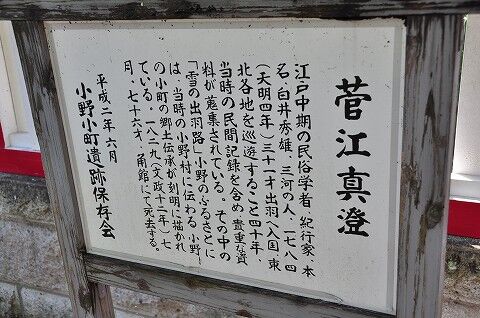 菅江真澄
江戸中期の民俗学者、紀行家、本
名、白井秀雄、三河の人、一七八四
（天明四年）三十一才、出羽へ入国、東
北各地を巡遊すること四十年、
当時の民間記録を含め、貴重な資
料が蒐集されている。その中の
「雪の出羽路」小野のふるさとに
は、当時の小野村に伝わる、小野
の小町の郷土伝承が刻明に描かれ
ている。一八二九（文政十二年）七
月、七十六才、角館にて死去する。
平成二年六月
小野小町遺跡保存会